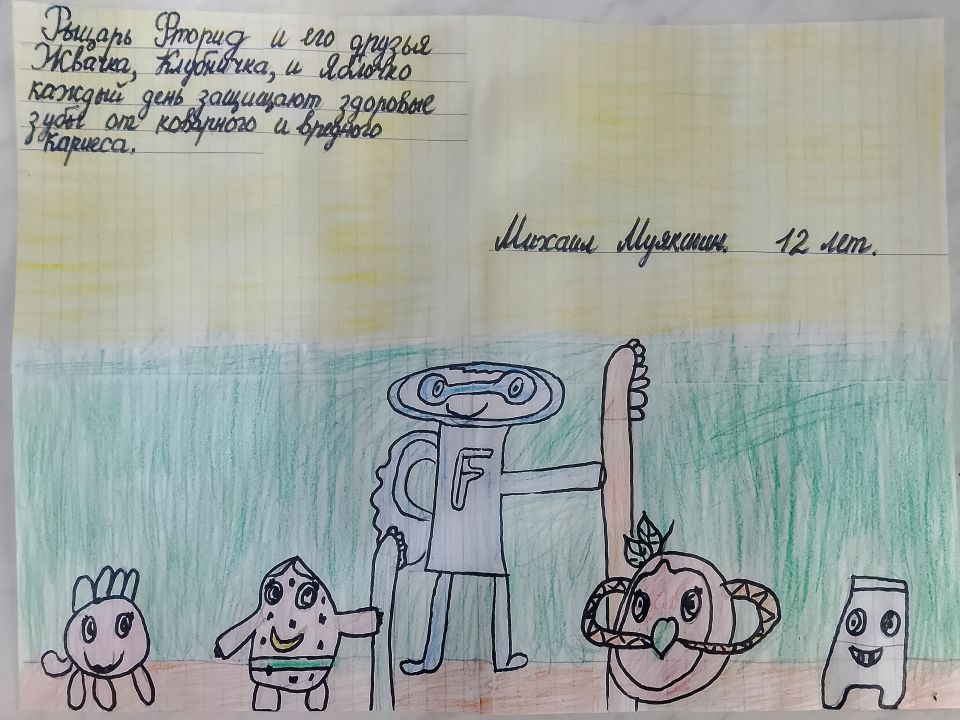 Рыцарь Фторид и его друзья
Жвачка, Клубничка, и Яблочко
каждый день защищают здоровые
зубы от коварного и вредного
Кариеса.
Михаил Муякшин. 12 лет.
F